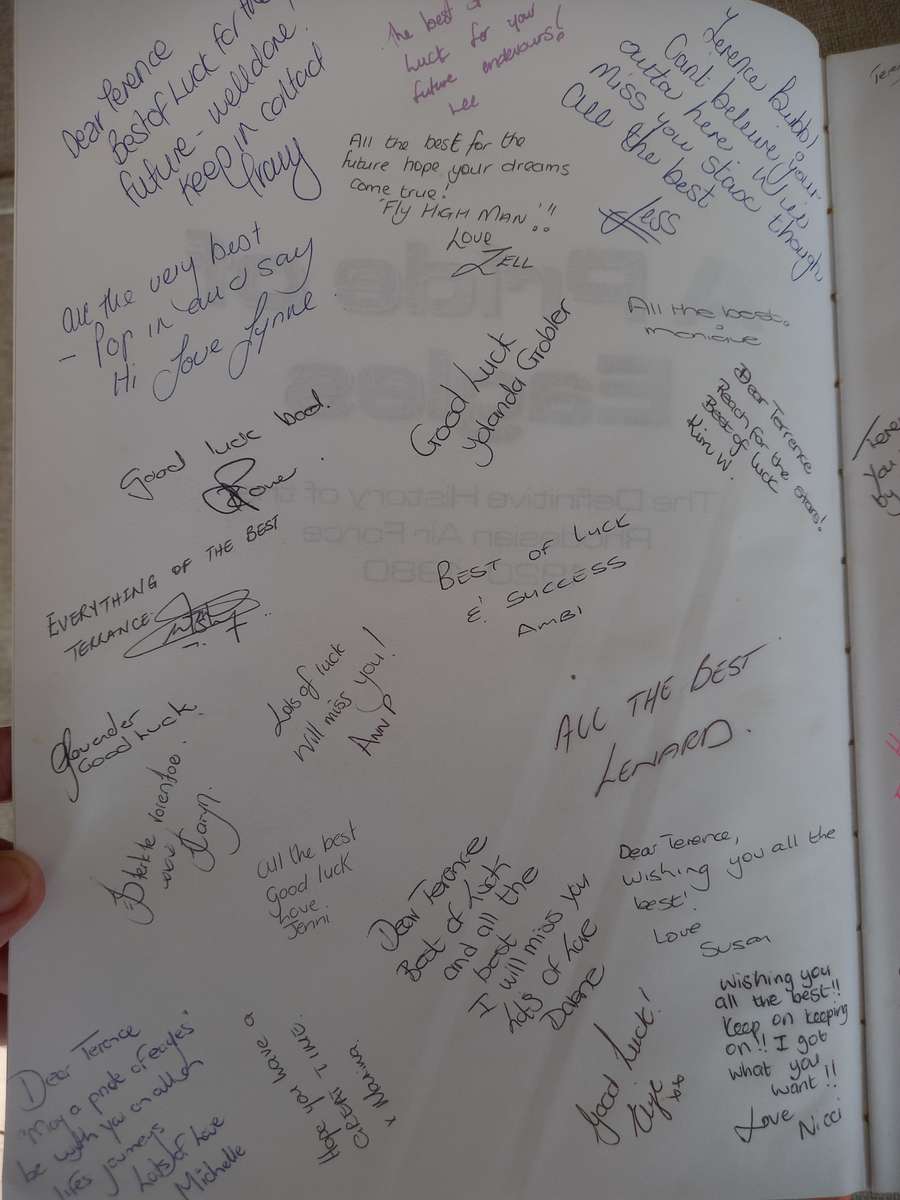 Dear Terence
Best of Luck for the
future - well done.
Keep in contact
The best of
Luck for your
future endevours!
Lee
Terence Bubbl
Cant beleive your
outta here. Will
miss you stax though
All the best
Jess
All the best for the
future hope your dreams
come true!
"Fly HIGH MAN"!!
LOVE
ZELL
All the very best
- Pop in and say
Hi Love Lynne
Good Luck
Yolanda Grobler
All the best.
Monique
Dear Terrence
Reach for the stars!
Best of luck
Kim W.
Good luck bad.
EVERYTHING OF THE BEST
TERRANCE.
BEST OF LUCK
& SUCCESS
AMBI
Lots of luck
Will miss you!
Ann P
ALL THE BEST
LENARD.
Good Luck
Sterkte vorentoe
Karyn.
All the best
Good luck
Love
Jenni
Dear Terence
Best of luck
and all the
best
I will miss you
Lots of Love
Dear Terence,
Wishing you all the
best!
Love
Susan
Dear Terence
"May a pride of eagles"
be with you on all of
lifes journeys
Lots of Love
Michelle
Hope you have a
GREAT TIME.
Good Luck!
xox
Wishing you
all the best!!
Keep on keeping
on!! I got
what you
want!!
Love
Nicci
A Pride of
Eagles
The Definitive History of the
Rhodesian Air Force